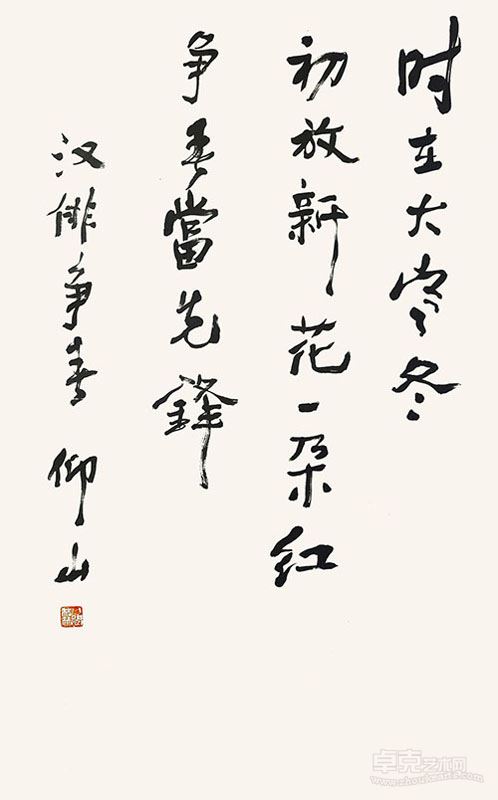 时在大寒冬
初放新花一朵红
争春當先鋒
汉俳争春 仰山
卓克艺术网